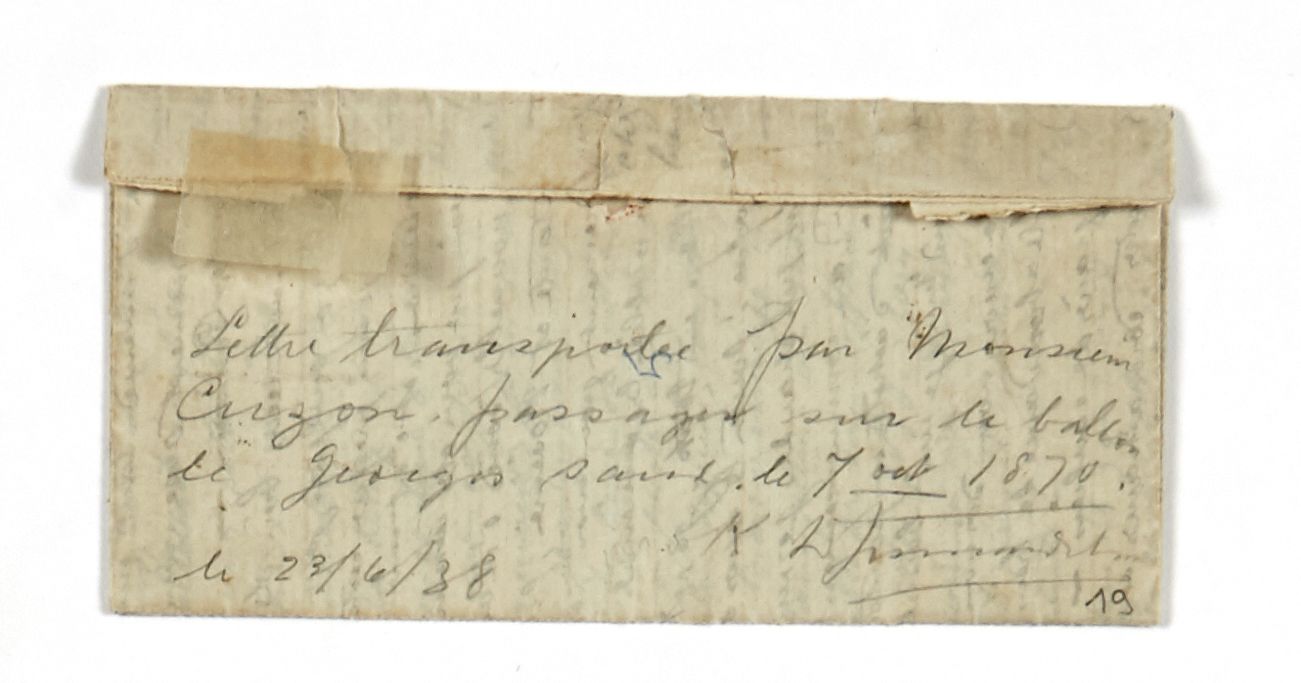 Lettre transportée par Monsieur
Cuzon. passager sur le ballon
le Georges sand. le 7 oct 1870.
le 23/6/38
19